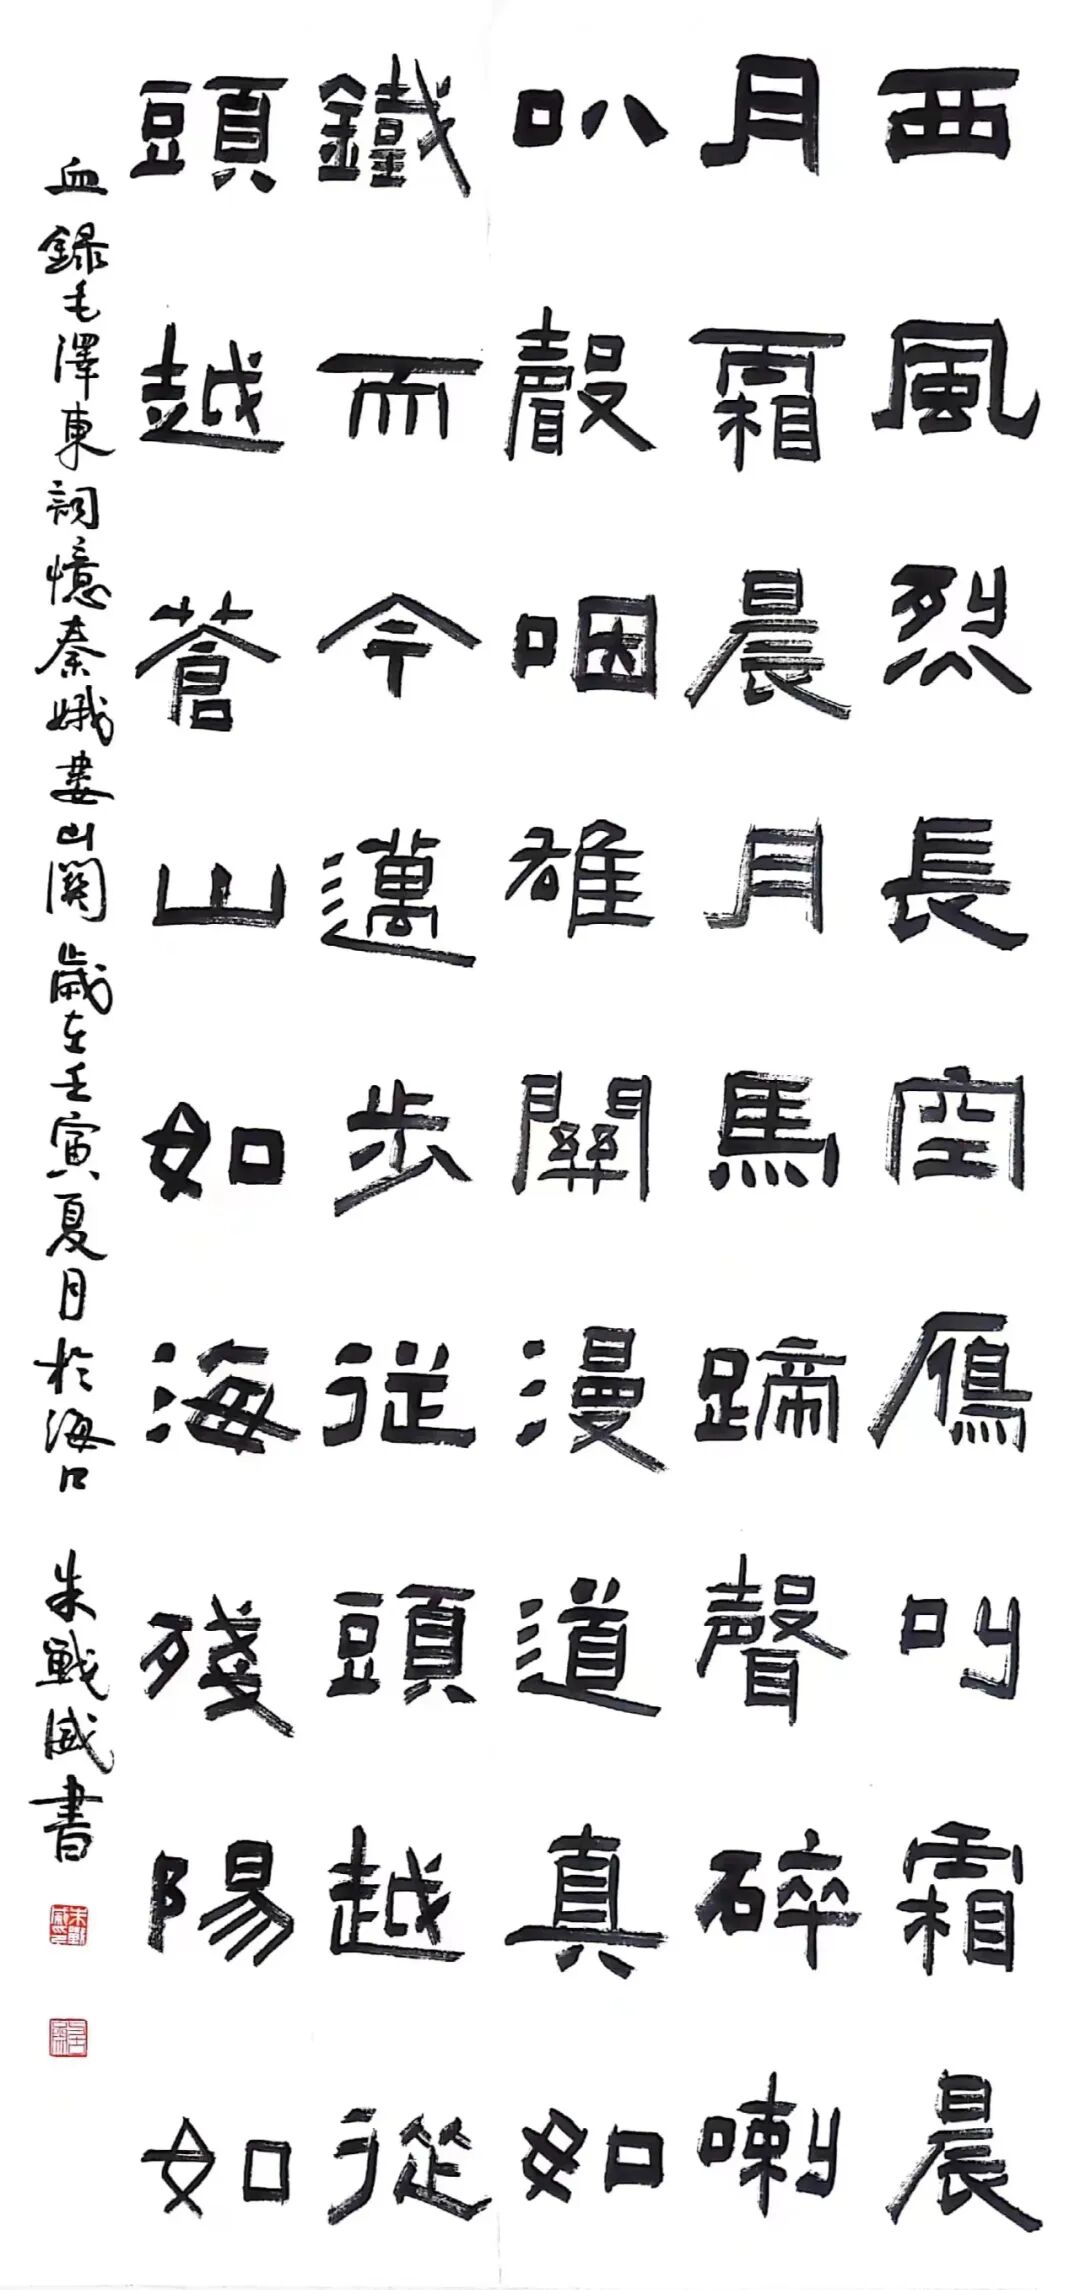 西風烈長空雁叫霜晨
月霜晨月馬蹄聲碎喇
叭聲咽雄關漫道真如
鐵而今邁步從頭越從
頭越蒼山如海殘陽如
血 錄毛澤東詞憶秦娥婁山關 歲在壬寅夏月於海口 朱戰威書
朱戰威印